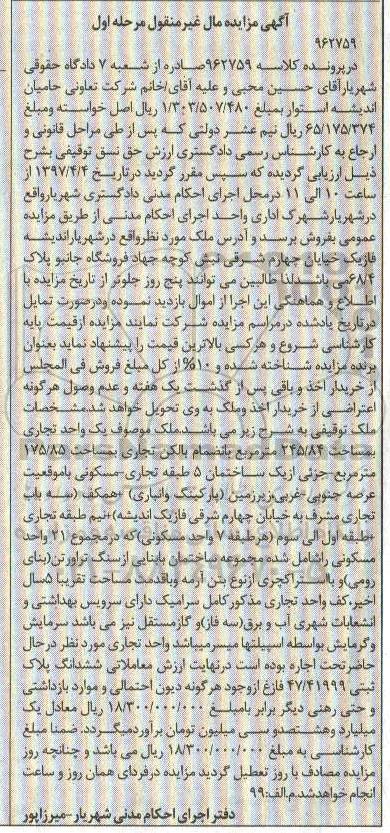 آگهی مزایده مال غیرمنقول مرحله اول
۹۶۲۷۵۹
درپرونده کلاسه ۹۶۲۷۵۹صادره از شعبه ۷ دادگاه حقوقی
شهریارآقای حسین محبی و علیه آقای/خانم شرکت تعاونی حامیان
اندیشه استوار بمبلغ ۱/۳۰۳/۵۰۷/۴۸۰ ریال اصل خواسته ومبلغ
۶۵/۱۷۵/۳۷۴ ریال نیم عشر دولتی که پس از طی مراحل قانونی و
ارجاع به کارشناس رسمی دادگستری ارزش حق نسق توقیفی بشرح
ذیل ارزیابی گردیده که سپس مقرر گردید درتاریخ ۱۳۹۷/۴/۴ از
ساعت ۱۰ الی ۱۱ درمحل اجرای احکام مدنی دادگستری شهریارواقع
درشهریارشهرک اداری واحد اجرای احکام مدنی از طریق مزایده
عمومی بفروش برسد و آدرس ملک مورد نظرواقع درشهریاراندیشه
فازیک خیابان چهارم شرقی نبش کوچه جهاد فروشگاه جانبو پلاک
۶۸/۴می باشد.لذا طالبین می توانند پنج روز جلوتر از تاریخ مزایده با
اطلاع و هماهنگی این اجرا از اموال بازدید نموده ودرصورت تمایل
درتاریخ یادشده درمراسم مزایده شرکت نمایند مزایده ازقیمت پایه
کارشناسی شروع و هرکسی بالاترین قیمت را پیشنهاد نماید بعنوان
برنده مزایده شناخته شده و ۱۰% از کل مبلغ فروش فی المجلس
از خریدار اخذ و باقی پس از گذشت یک هفته و عدم وصول هرگونه
اعتراضی از خریدار اخذ وملک به وی تحویل خواهد شد.مشخصات
ملک توقیفی به شرح زیر می باشد.ملک موصوف یک واحد تجاری
بمساحت ۲۴۵/۸۴ مترمربع بانضمام بالکن تجاری بمساحت ۱۷۵/۸۵
مترمربع-جزئی ازیک ساختمان ۵ طبقه تجاری-مسکونی باموقعیت
عرصه جنوبی-غربی،زیرزمین (پارکینگ وانباری) +همکف (سه باب
تجاری مشرف به خیابان چهارم شرقی فازیک اندیشه)+نیم طبقه تجاری
+طبقه اول الی سوم (هرطبقه ۷ واحد مسکونی)که درمجموع ۲۱ واحد
مسکونی راشامل شده مجموعه ساختمان بابنایی ازسنگ تراورتن(بنای
رومی)و بااستراکچری ازنوع بتن آرمه وباقدمت مساحت تقریبا ۵سال
اخیر،کف واحد تجاری مذکورکامل سرامیک دارای سرویس بهداشتی و
انشعابات شهری آب و برق(سه فاز)و گازمستقل نیز می باشد سرمایش
وگرمایش بواسطه اسپیلتها میسرمیباشد واحد تجاری مورد نظر درحال
حاضرتحت اجاره بوده است درنهایت ارزش معاملاتی ششدانگ پلاک
ثبتی ۴۷/۴۱۹۹۹ فارغ ازوجود هرگونه دیون احتمالی و موارد بازداشتی
و حتی رهنی دیگر برابر بامبلغ ۱۸/۳۰۰/۰۰۰/۰۰۰ ریال معادل یک
میلیارد وهشتصدو سی میلیون تومان برآوردمیگردد. ضمنا مبلغ
کارشناسی به مبلغ ۱۸/۳۰۰/۰۰۰/۰۰۰ ریال می باشد و چنانچه روز
مزایده مصادف با روز تعطیل گردید مزایده درفردای همان روز و ساعت
انجام خواهدشد.م.الف:۹۹
دفتر اجرای احکام مدنی شهریار-میرزاپور